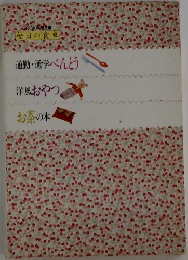 毎日の食事
通勤・通学べんとう
洋風おやつ
お茶の本